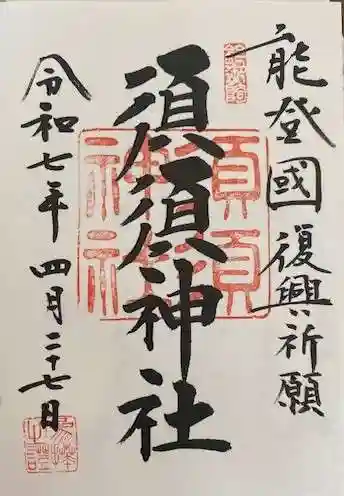 能登國復興祈願
須須神社
令和七年四月二十七日
須須
神社